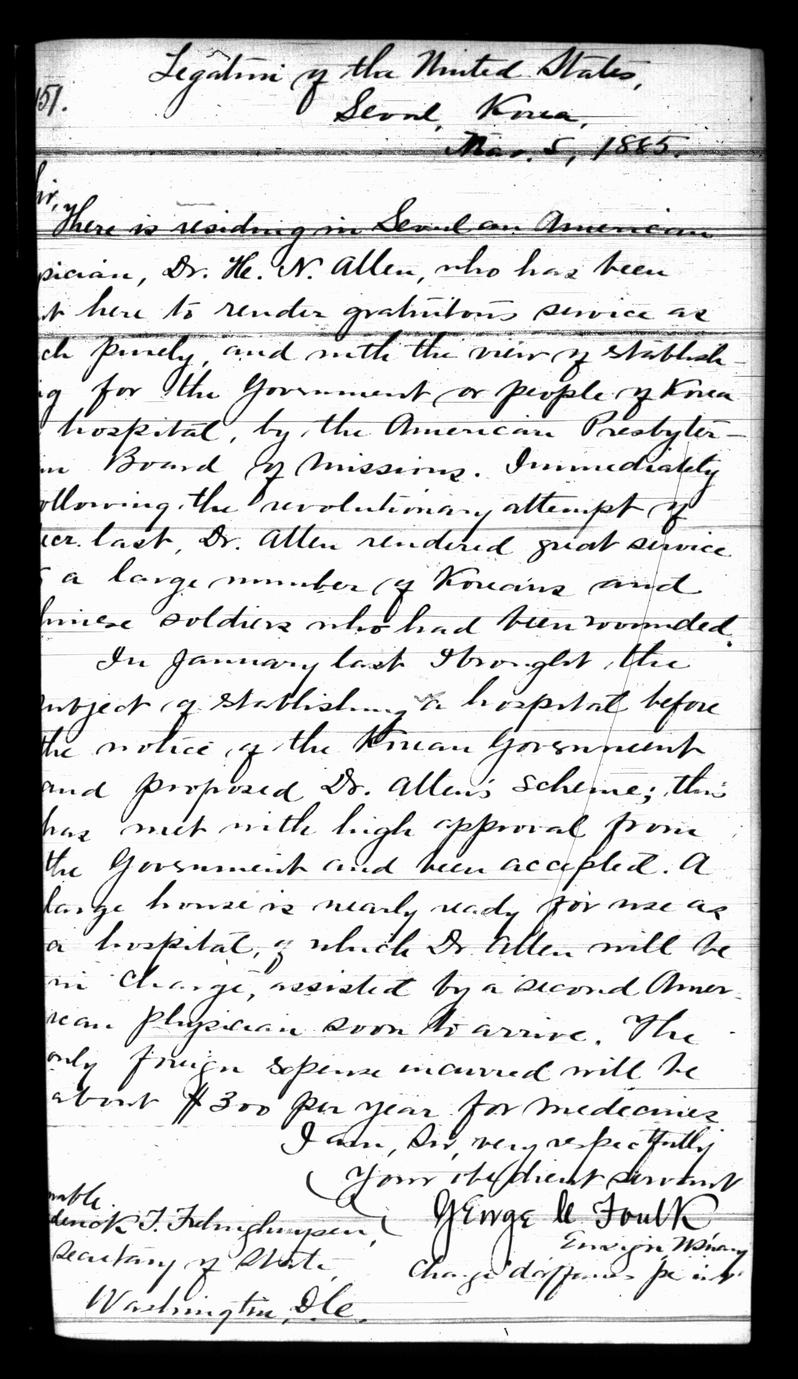 Legation of the United States,
151.
Seoul, Korea,
Mar. 5, 1885.
Sir,
There is residing in Seoul an American
sician, Dr. H. N. Allen, who has been
nt here to render gratuitous service as
ch purely, and with the view of establish-
ng for the Government or people of Korea
hospital, by the American Presbyter-
an Board of Missions. Immediately
ollowing the revolutionary attempt of
ecr. last, Dr. Allen rendered great service
a large number of Koreans and
hinese soldiers who had been wounded.
In January last I brought the
subject of establishing a hospital before
the notice of the Korean Government
and proposed Dr. Allen's scheme; this
has met with high approval from
the Government and been accepted. A
large house is nearly ready for use as
a hospital, of which Dr. Allen will be
in charge, assisted by a second Amer-
ican physician soon to arrive. The
only foreign expense incurred will be
about $300 per year for medecines.
I am, Sir, very respectfully
Your obedient servant
George C Foulk
Ensign U.S. Navy
Charge d'affaires
rable
derick T. Frelinghuysen,
Secretary of State
Washington, D.C.